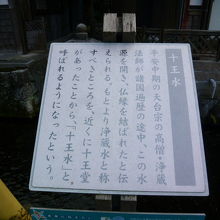 十王水
平安中期の天台宗の高僧・浄蔵
法師が諸国遍歴の途中、この水
源を開き、仏縁を結ばれたと伝
えられる。もとより浄蔵水と称
すべきところを、近くに十王堂
があったことから、「十王水」と
呼ばれるようになったという。